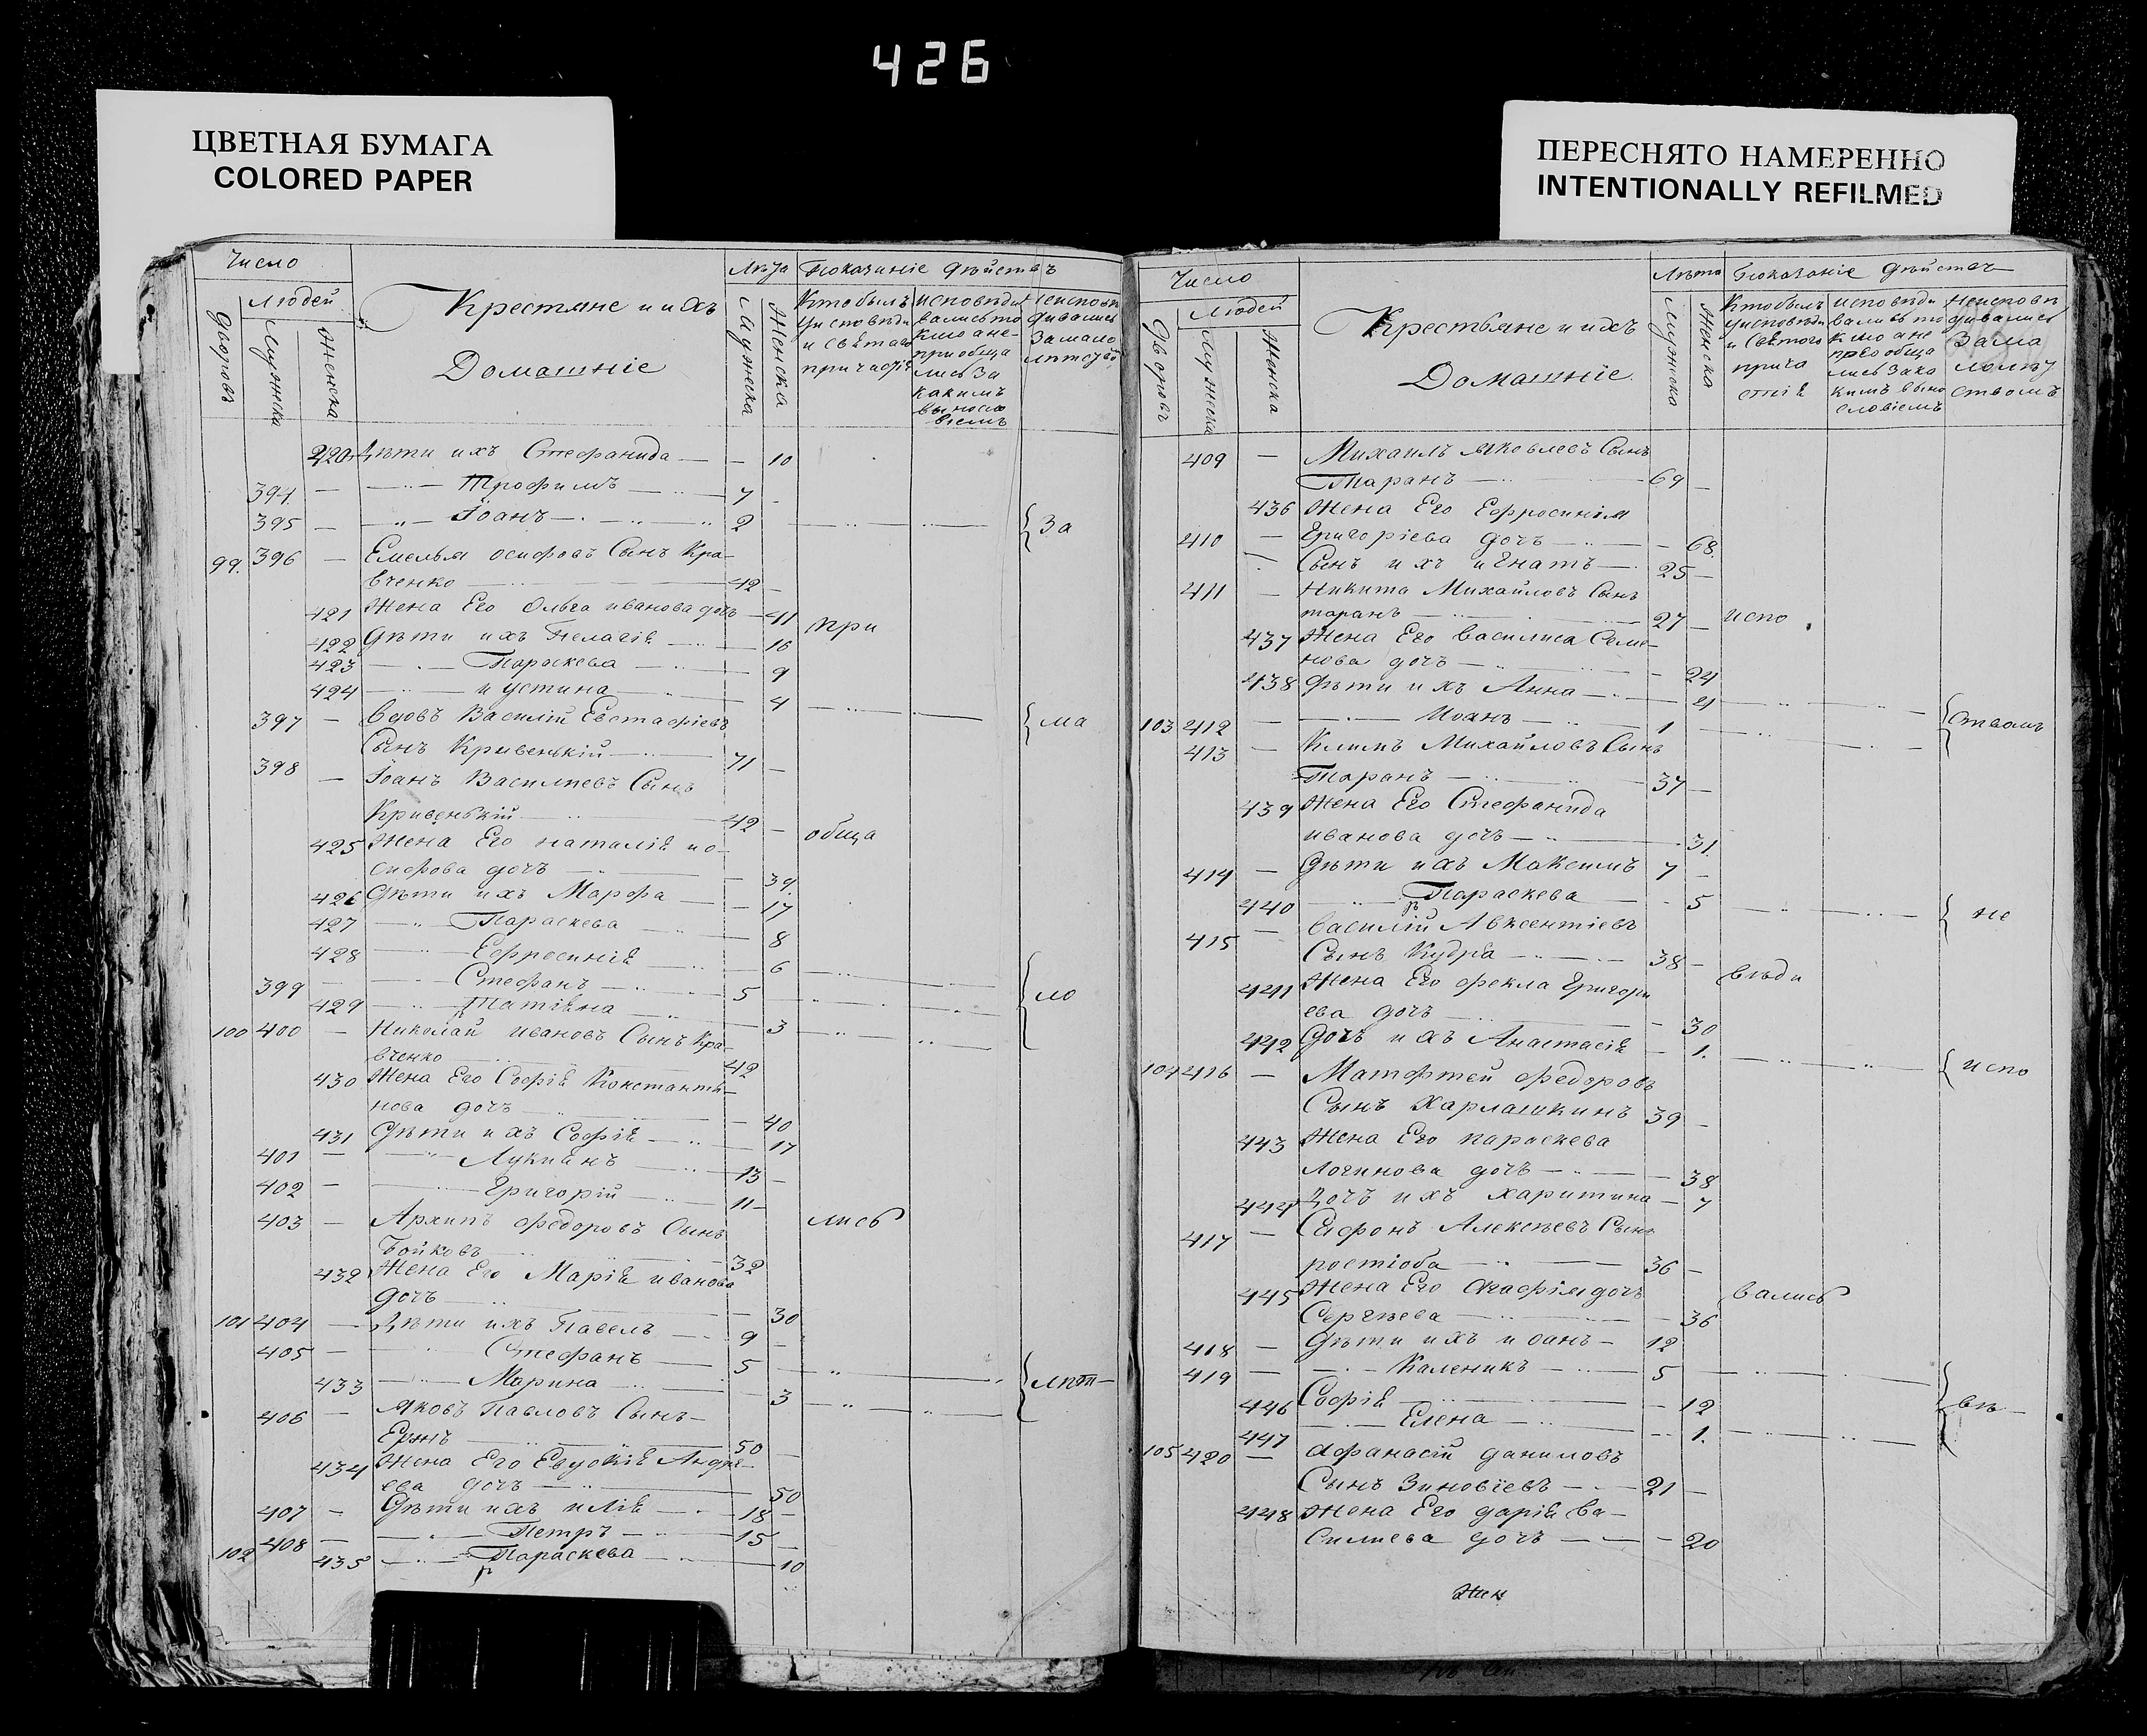 426
ЦВЕТНАЯ БУМАГА
COLORED PAPER
ПЕРЕСНЯТО НАМЕРЕННО
INTENTIONALLY REFILMED
Число
Людей
Дворовъ
Мужеска
Женска
Крестяне и ихъ
Домашніе
Лѣта
Мужеска
Женска
Показаніе дѣйствъ
Кто былъ
у исповѣди
и святаго
причастія
исповѣди
вались то
кмо а не
приобща
лись за
какимъ
виносло
віемъ
неисповѣ
дивались
за мало
лѣтство
420 Дѣти ихъ Стефанида — — 10
394 — Трофимъ — 7 —
395 — Іоанъ — 2 { За
99. 396 — Емельян осифовъ Сынъ Кра–
вченко — 42 —
421 Жена Его Ольга иванова дочь — 41 при
422 Дѣти ихъ Пелагія — 16
423 — Параскева — 9
424 — иустина — 4
397 — вдовъ Василій Евстафіевъ { ма
Сынъ Кривенькій — 71 —
398 — Іоанъ Василиевъ Сынъ
Кривенькій — 42 — обща
425 Жена Его наталія ио–
сифова дочь — 39.
426 Дѣти ихъ Марфа — 17
427 — Параскева — 8
428 — Ефросинія — 6
399 — Стефанъ — 5 { ло
429 — Татіяна — 3
100 400 — Николай ивановъ Сынъ Кра–
вченко — 42
430 Жена Его Софія Константи–
нова дочь — 40
431 Дѣти ихъ Софія — 17
401 — Лукиянъ — 13 —
402 — Григорій — 11 —
403 — Архипъ федоровъ Сынъ лись
Бойковъ — 32
432 Жена Его Марія иванова
дочь — 30
101 404 — Дѣти ихъ Павелъ — 9 —
405 — Стефанъ — 5
433 — Марина — 3 { лѣт–
406 — Яковъ Павловъ Сынъ —
— 50 —
434 Жена Его Евдокія Андре–
ева дочь — 50
407 — Дѣти ихъ илія — 18 —
408 — Петръ — 15 —
102 435 — Параскева — 10
Число
Людей
Дворовъ
Мужеска
Женска
Крестьяне и ихъ
Домашніе.
Лѣта
Мужеска
Женска
Показаніе дѣйствъ
Кто былъ
у исповѣди
и святого
прича
стія
исповѣди
вались то
кмо а не
преобща
лись за ка
кимъ вино
словіемъ
неисповѣ
дивались
за ма
лолѣт
ствомъ
409 — Михаилъ Яковлевъ Сынъ
Таранъ — 69 —
436 Жена Его Ефросинія
410 — Григоріева дочь — 68.
Сынъ ихъ игнатъ — 25 —
411 — Никита Михайловъ Сынъ
таранъ — 27 — испо
437 Жена Его Василиса Семе–
нова дочь — 24
438 дѣти ихъ Анна — 4
103 412 — Иоанъ — 1 { ствомъ
413 — Климъ Михайловъ Сынъ
Таранъ — 37 —
439 Жена Его Стефанида
иванова дочь — 31.
414 — Дѣти ихъ Максимъ 7 —
440 Параскева — 5 { не
415 — Василій Авксентіевъ
Сынъ Кудря — 38 — вѣди
441 Жена Его фекла Григори
ева дочь — 30
442 дочь ихъ Анастасія — 1.
104 416 — Матфтей федоровъ { испо
Сынъ Харлашкинъ 39 —
443 Жена Его параскева
Логинова дочь — 38
444 Дочь ихъ харитина — 7
417 — Сафонъ Алексѣевъ Сынъ
— 36 —
445 Жена Его Агафія дочь вались
Сергѣева — 36
418 — Дѣти ихъ иоанъ — 12
419 — Каленикъ — 5
446 Софія — 12 { вѣ–
447 — Елена — 1.
105 420 — Афанасій даниловъ
Сынъ Зиновіевъ — 21 —
448 Жена Его дарія Ва–
силиева дочь — 20
Жен